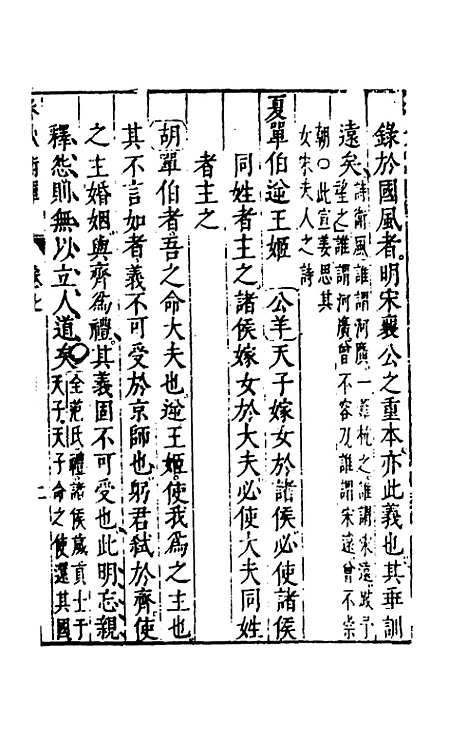 錄於國風者明宋襄公之重本亦此義也其垂訓
遠矣詩衛風誰謂河廣一葦杭之誰謂宋遠跂予
望之誰謂河廣曾不容刀誰謂宋遠曾不崇
朝〇此宣姜思其
女宋夫人之詩
夏單伯逆王姬 公羊天子嫁女於諸侯必使諸侯
同姓者主之諸侯嫁女於大夫必使大夫同姓
者主之
胡單伯者吾之命大夫也逆王姬使我為之主也
其不言如者義不可受於京師也躬君弑於齊使
之主婚姻與齊為禮其義固不可受也此明忘親
釋怨則無以立人道矣〇全范氏禮諸侯歲貢士于
天子天子命之使還其國